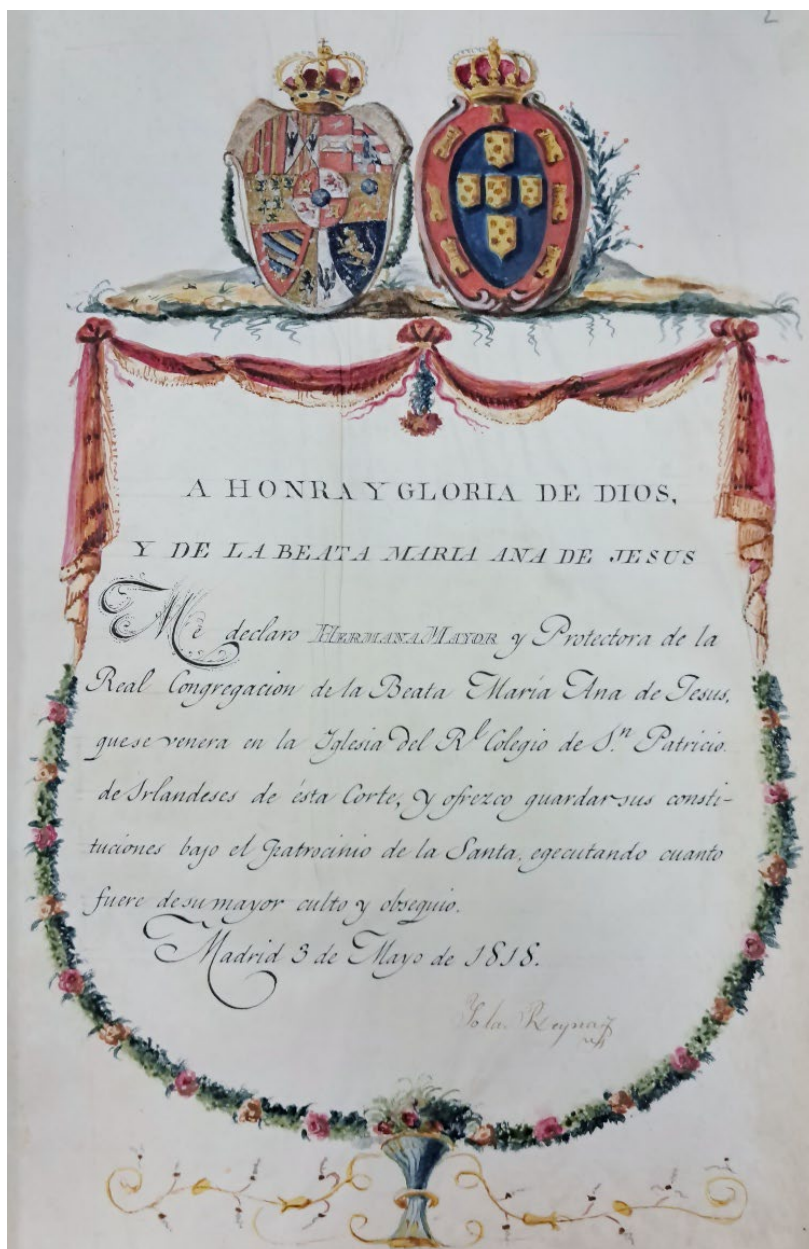 2
A HONRA Y GLORIA DE DIOS,
Y DE LA BEATA MARIA ANA DE JESUS
Me declaro HERMANA MAYOR y Protectora de la
Real Congregacion de la Beata María Ana de Jesus,
que se venera en la Iglesia del R.l Colegio de S.n Patricio
de Irlandeses de ésta Corte, y ofrezco guardar sus consti-
tuciones bajo el Patrocinio de la Santa, egecutando cuanto
fuere de su mayor culto y obsequio.
Madrid 3 de Mayo de 1818.
Yo la Reyna